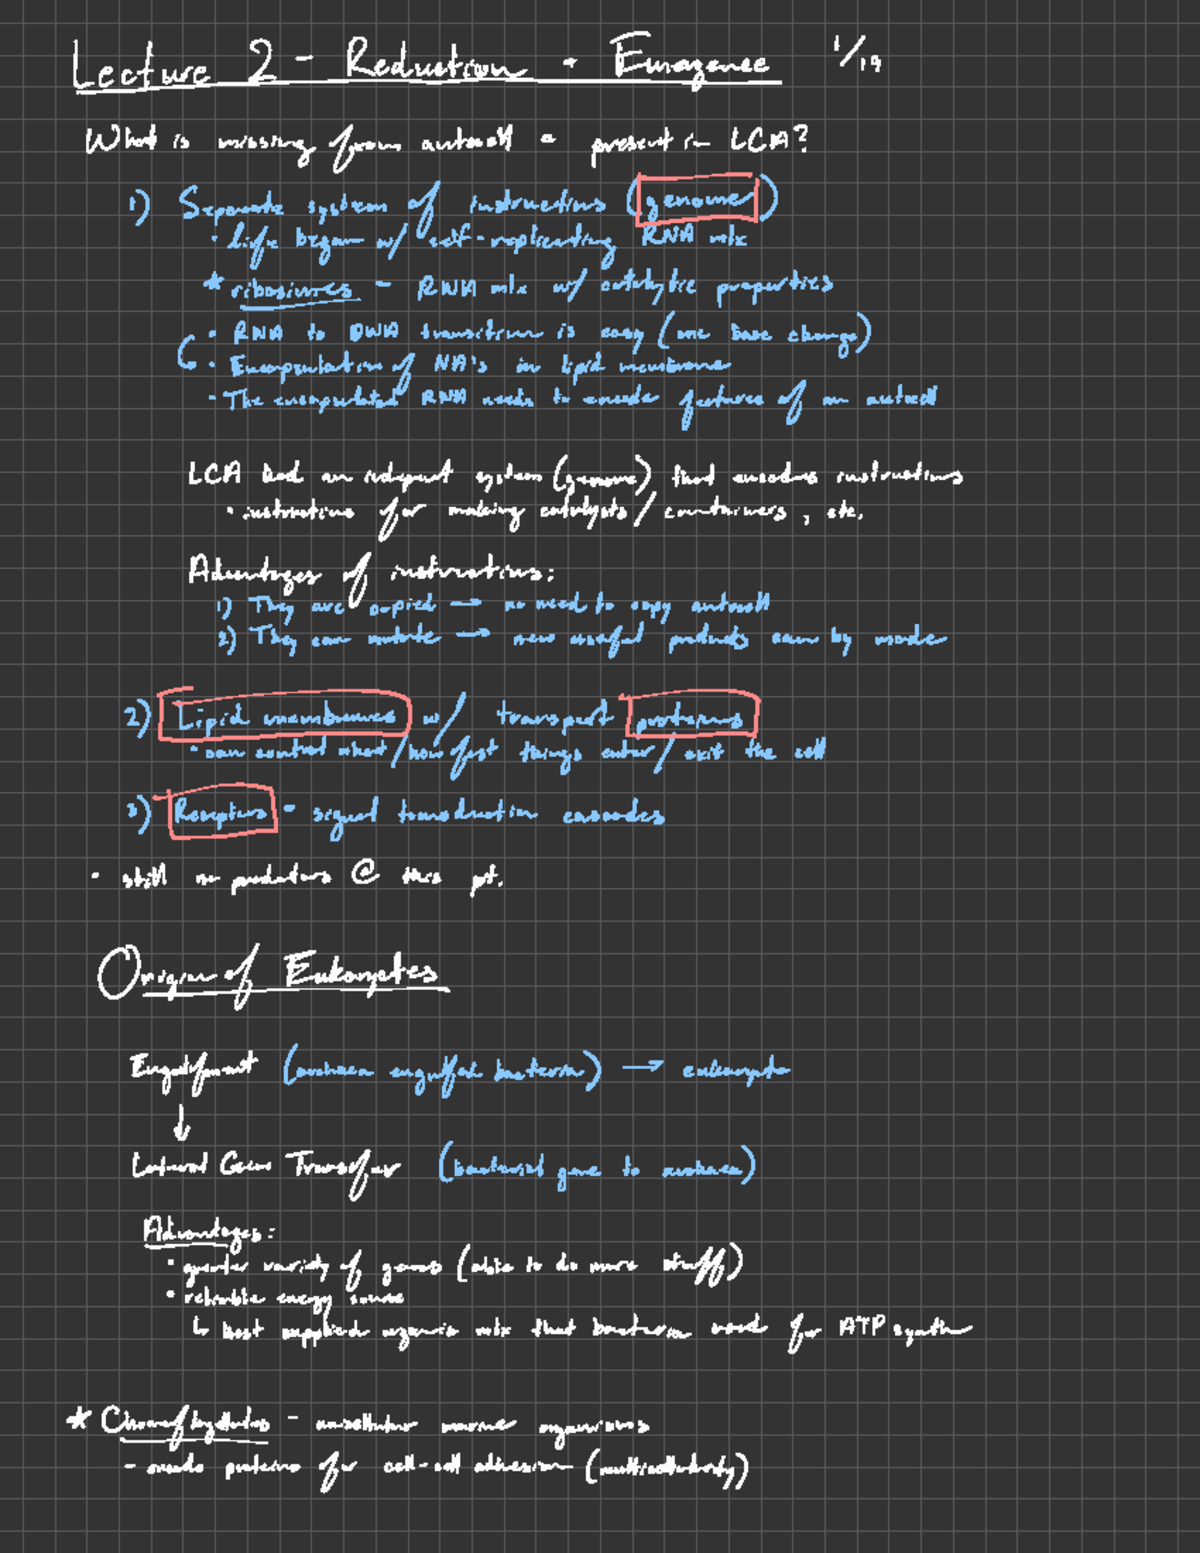 Lecture 2 - Reduction + Emergence 1/19
What is missing from autocell + present in LCA?
1) Separate system of instructions (genome)
· Life began w/ self-replicating RNA mlx
* ribosimes - RNA mlx w/ catalytic properties
· RNA to DNA transition is easy (one base change)
· Encapsulation of NA's in lipid membrane
- The encapsulated RNA needs to encode features of an autocell
LCA had an system (genome) that encodes instructions
· instructions for making catalysts/containers, etc.
Advantages of instructions:
1) They are copied → no need to copy autocell
2) They can mutate → new useful products can by made
2) Lipid membranes w/ transport proteins
· can control what/how fast things enter/exit the cell
3) Receptors + signal transduction cascades
· still no predators @ this pt.
Origin of Eukaryotes
Engulfment (archaea engulfed bacteria) → eukaryote
↓
Lateral Gene Transfer (bacterial gene to archaea)
Advantages:
· greater variety of genes (able to do more stuff)
· reliable energy source
↳ host supplied organic mlx that bacteria used for ATP synth
* - unicellular marine organisms
- proteins for cell-cell adhesion (multicellularity)